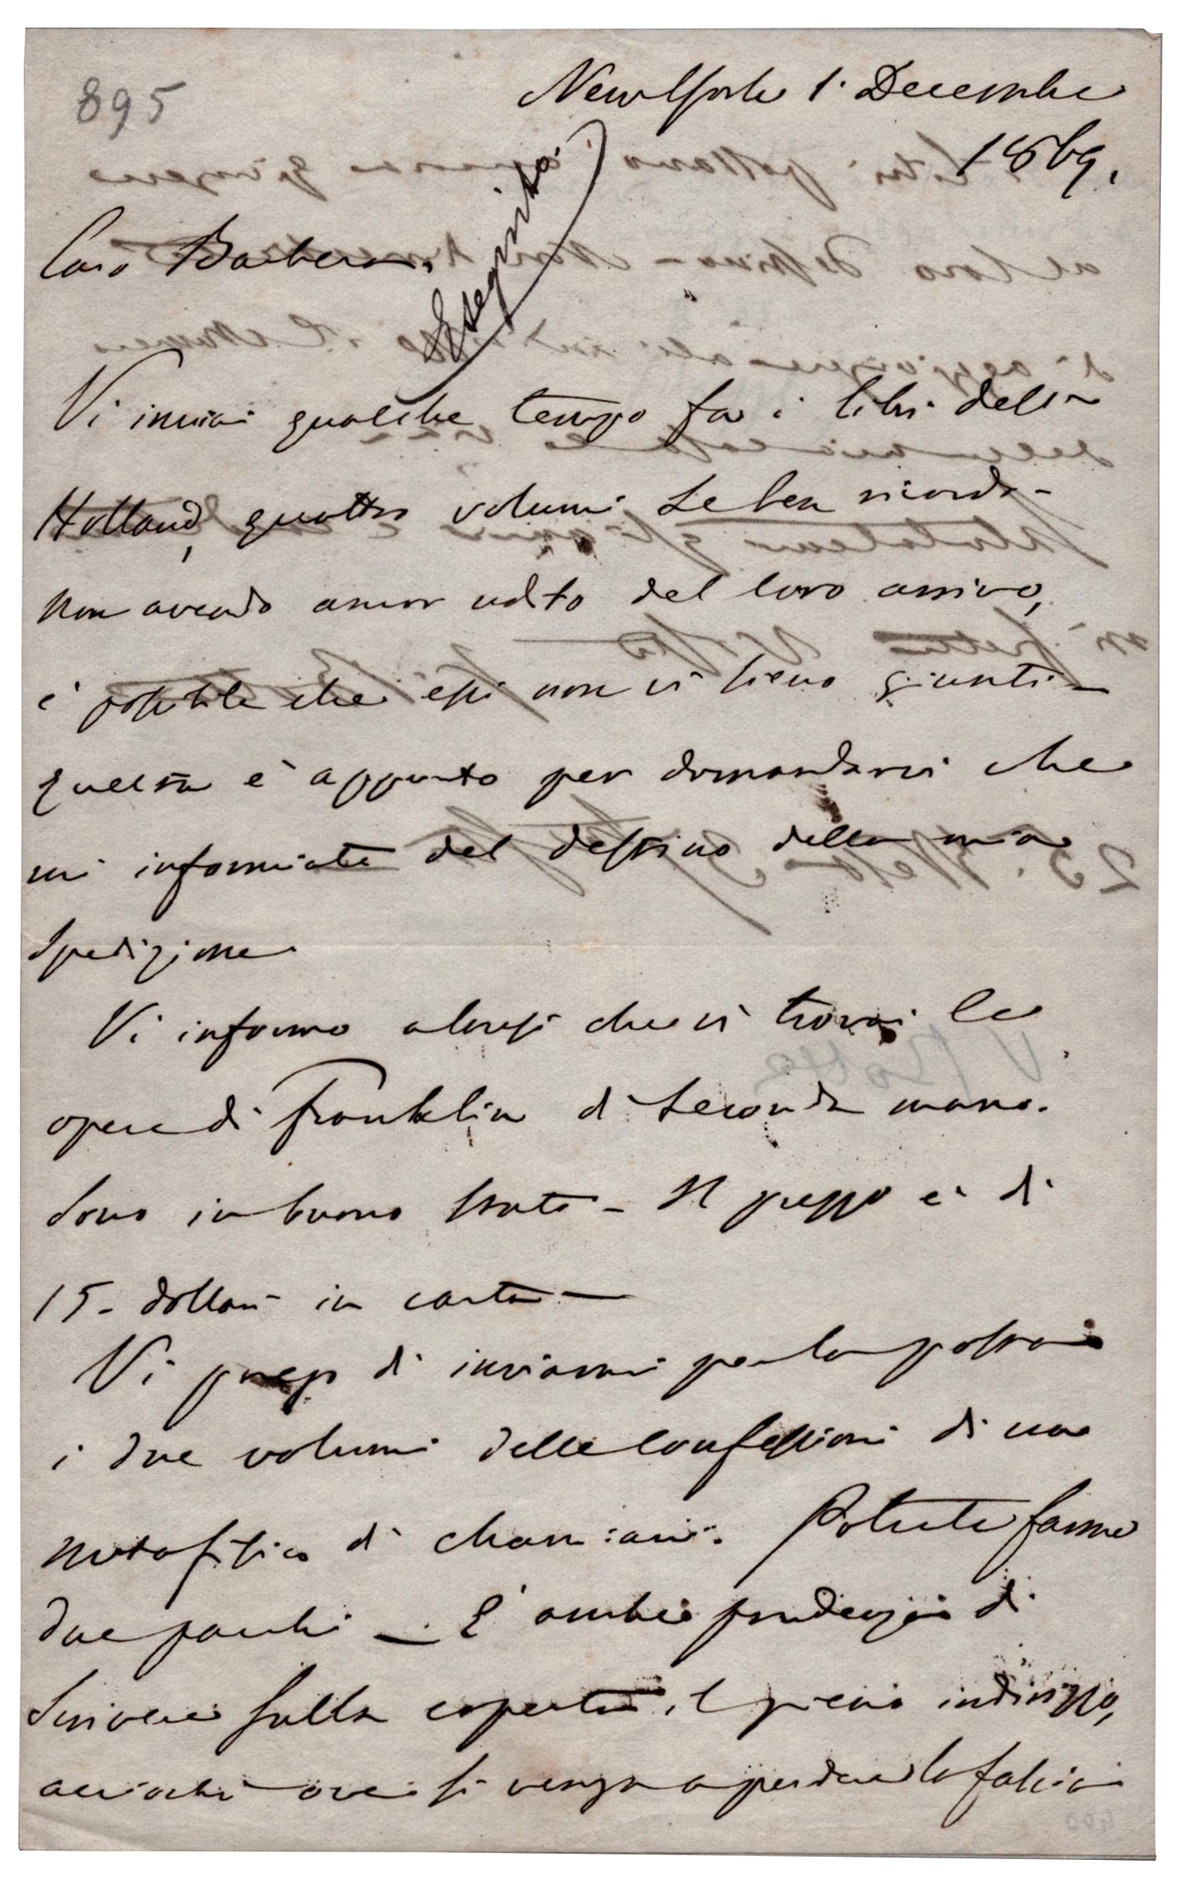 895
New York 1. Decembre
1869.
Eseguito.
Caro Barbera.
Vi inviai qualche tempo fa i libri della
Holland, quattro volumi se ben ricordo -
non avendo ancor udito del loro arrivo,
è possibile che essi non vi sieno giunti -
questa è appunto per domandarvi che
mi informiate del destino della mia
spedizione
Vi informo altresì che vi trovai le
opere di Franklin di seconda mano.
Sono in buono stato - Il prezzo è di
15 - dollari in carta -
Vi prego di inviarmi per la posta
i due volumi delle Confessioni di un
metafisico di Mamiani. Potrete farne
due pacchi - È anche prudenza di
scrivere sulla coperta il pieno indirizzo,
acciochè ove si venga a perdere la fascia